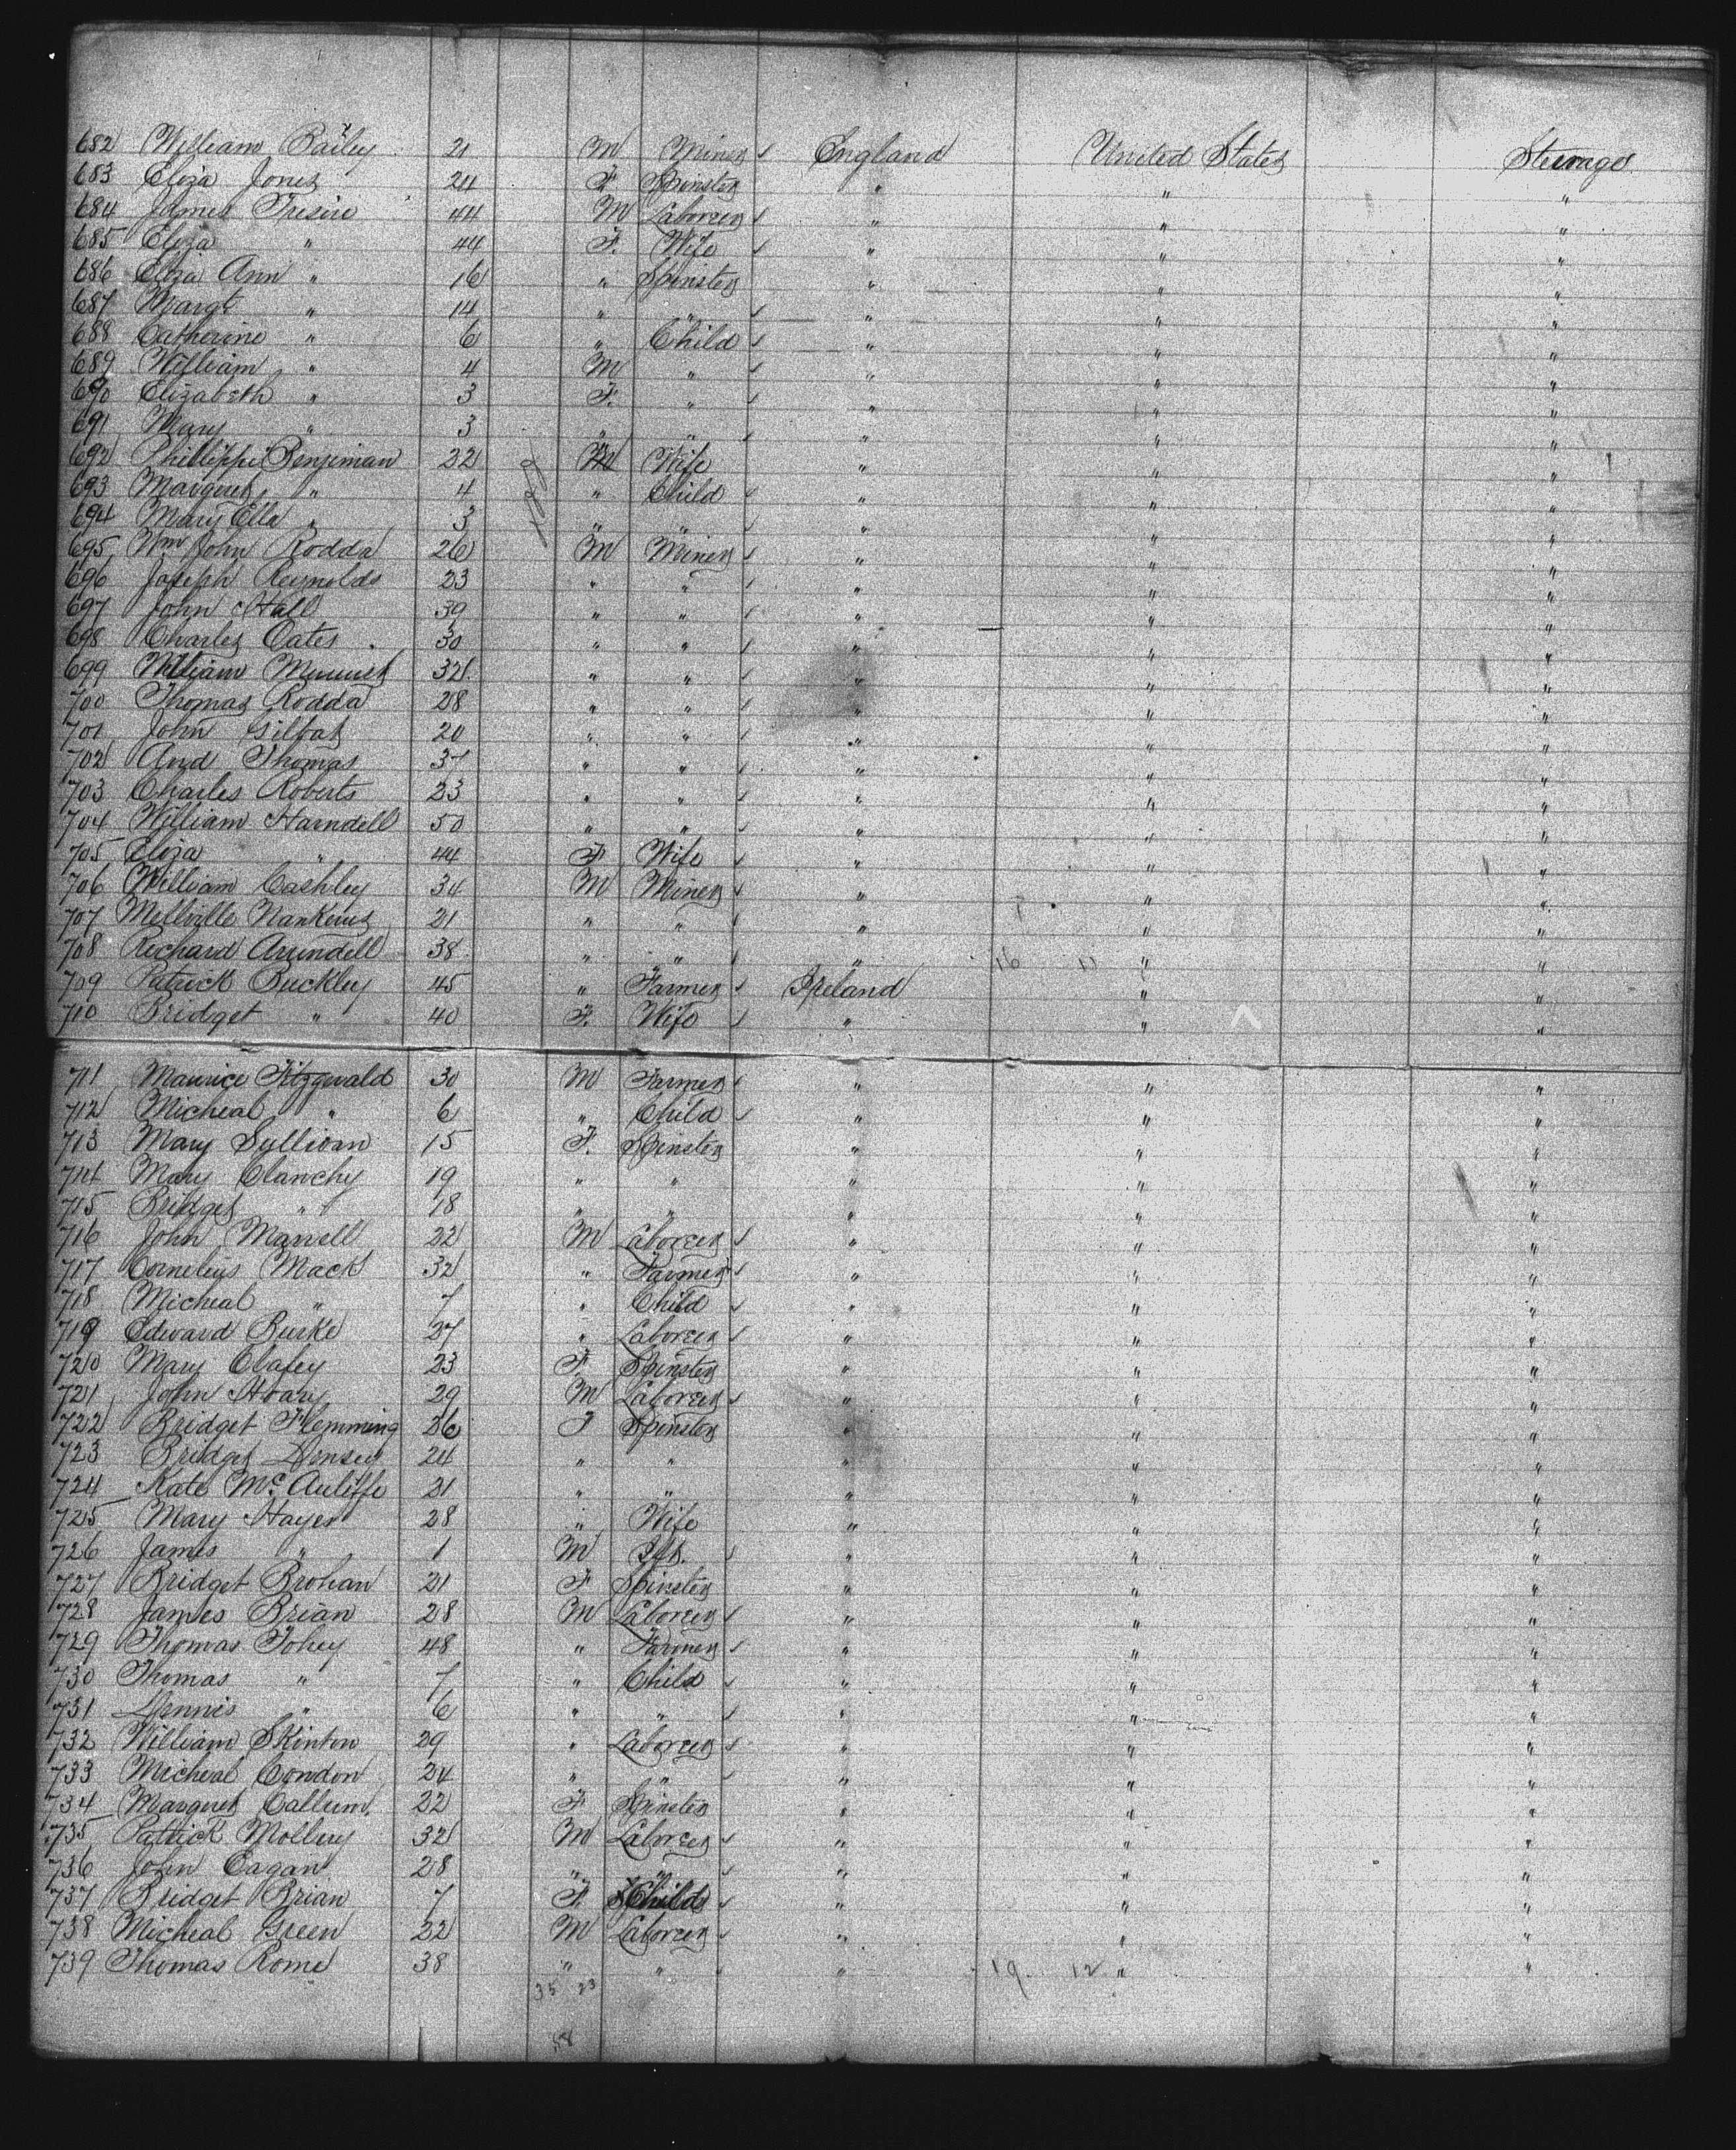 682 William Bailey 21 M Miner England United States Steerage
683 Eliza Jones 24 F Spinster " " "
684 James 44 M Laborer " " "
685 Eliza " 44 F. Wife " " "
686 Eliza Ann " 16 " Spinster " " "
687 Margt " 14 " " " " "
688 Catherine " 6 " Child " " "
689 William " 4 M " " " "
690 Elizabeth " 3 F. " " " "
691 Mary " 3 " " " " "
692 Phillippi Benjiman 22 Wife " " "
693 Margret " 4 " Child " " "
694 Mary Ella " 3 " " " " "
695 Wm John Rodda 26 M Miner " " "
696 Joseph Reynolds 23 " " " " "
697 John Hall 39 " " " " "
698 Charles Oates 30 " " " " "
699 William 32 " " " " "
700 Thomas Rodda 28 " " " " "
701 John Gilbat 20 " " " " "
702 And Thomas 37 " " " " "
703 Charles Roberts 23 " " " " "
704 William Harndell 50 " " " " "
705 Eliza " 44 F Wife " " "
706 William Cashley 34 M Miner " " "
707 Mellville Nankivus 21 " " " " "
708 Richard Arundell 38 " " " " "
16 11
709 Patrick Buckley 45 " Farmer Ireland " "
710 Bridget " 40 F. Wife " " "
711 Maurice Fitzgerald 30 M Farmer " " "
712 Micheal " 6 " Child " " "
713 Mary Sullivan 15 F. Spinster " " "
714 Mary Clanchy 19 " " " " "
715 Bridget " 18 " " " " "
716 John Marvell 22 M Laborer " " "
717 Cornelius Mack 32 " Farmer " " "
718 Micheal " 7 " Child " " "
719 Edward Burke 27 " Laborer " " "
720 Mary Clafey 23 F. Spinster " " "
721 John Hoary 29 M Laborer " " "
722 Bridget Flemming 26 F Spinster " " "
723 Bridget Densey 24 " " " " "
724 Kate Mc Auliffe 21 " " " " "
725 Mary Hayes 28 " Wife " " "
726 James " 1 M Inft. " " "
727 Bridget Brohan 21 F Spinster " " "
728 James Brian 28 M Laborer " " "
729 Thomas Fohey 48 " Farmer " " "
730 Thomas " 7 " Child " " "
731 Dennis " 6 " " " " "
732 William Skinton 29 " Laborer " " "
733 Micheal Condon 24 " " " " "
734 Margret Callum 22 F Spinster " " "
735 Patrick Mollury 32 M Laborer " " "
736 John Eagan 28 " " " " "
737 Bridget Brian 7 F. Child " " "
738 Micheal Green 22 M Laborer " " "
739 Thomas Rome 38 " " " 19 12 " "
35 23
58